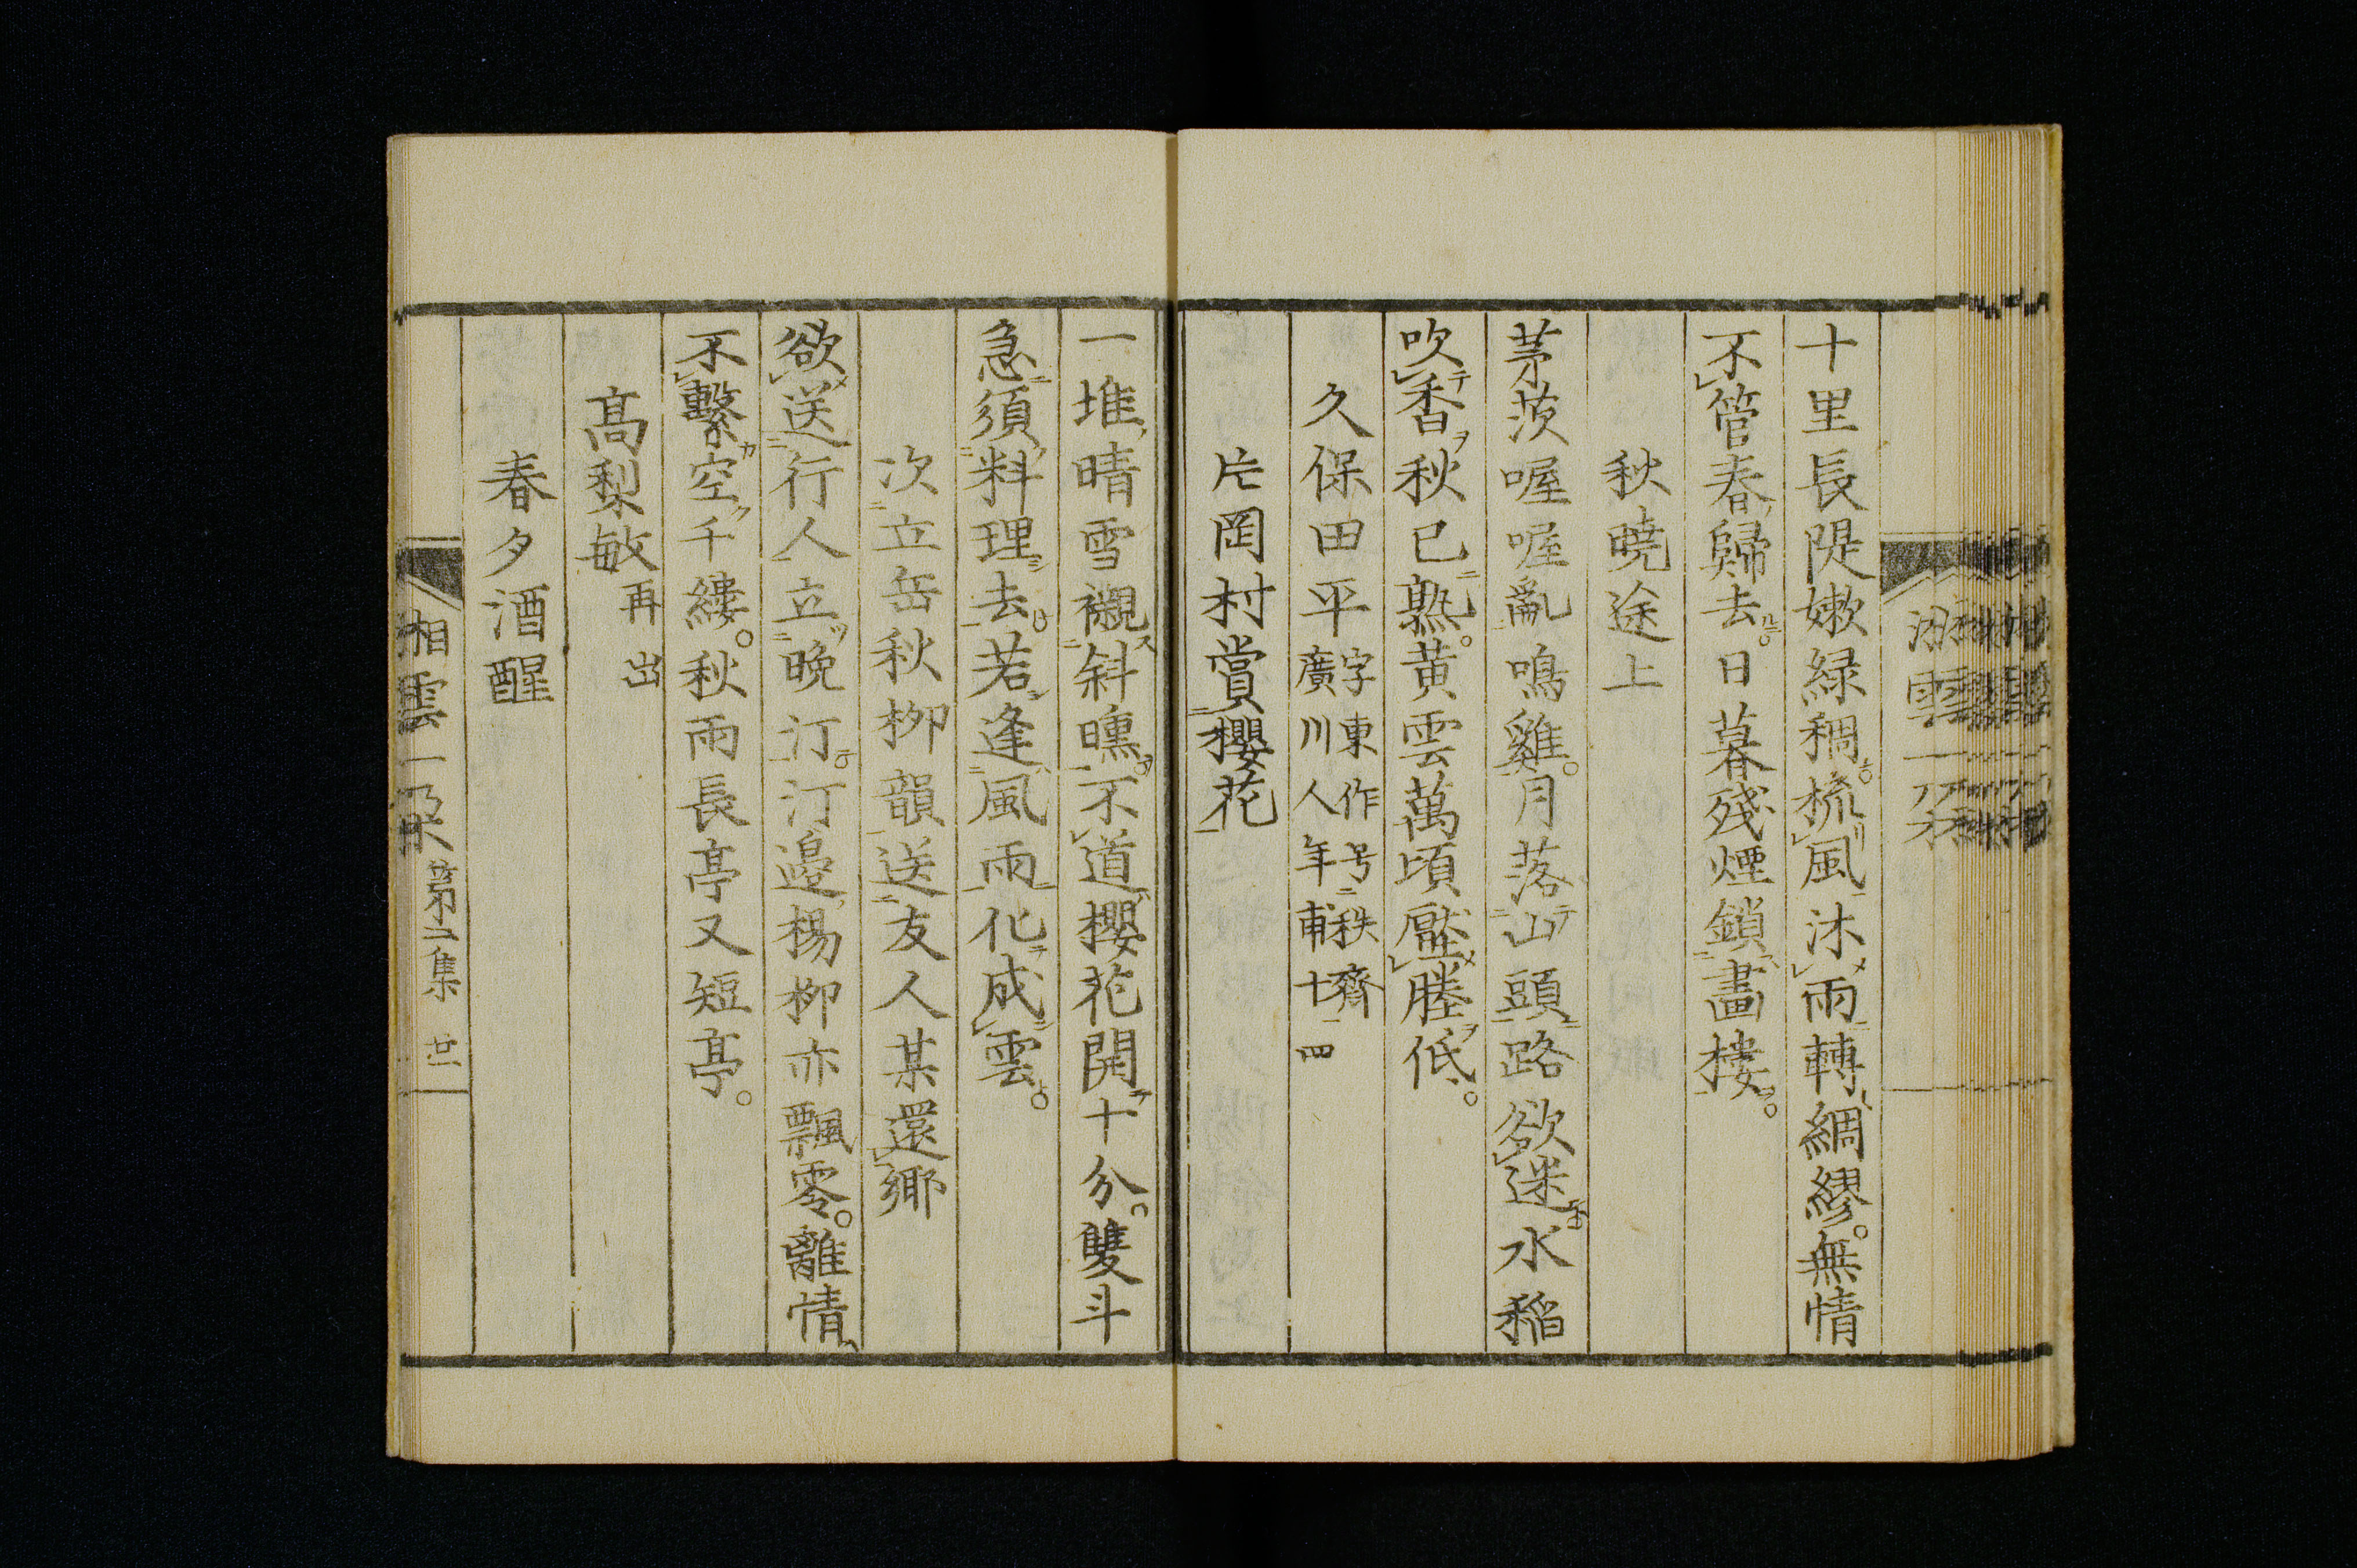 十里長隄嫩緑稠。梳風沐雨轉綢繆。無情
不管春歸去。日暮殘煙鎖畫樓。
秋曉途上
茅茨喔喔亂鳴雞。月落山頭路欲迷。水稲
吹香秋已熟。黄雲萬頃壓塍低。
久保田平 字東作号秩齋廣川人年甫十四
片岡村賞櫻花
一堆晴雪襯斜曛。不道櫻花開十分。雙斗
急須料理去。若逢風雨化成雲。
次立岳秋柳韻送友人某還鄉
欲送行人立晩汀。汀邊楊柳亦飄零。離情
不繫空千縷。秋雨長亭又短亭。
髙梨敏 再出
春夕酒醒
湘雲一朶 第二集 廿一